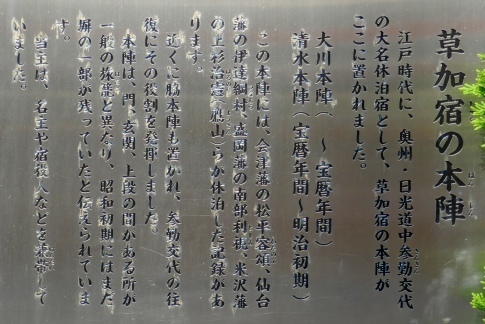 草加宿の本陣
江戸時代に、奥州・日光道中参勤交代
の大名休泊宿として、草加宿の本陣が
ここに置かれました。
大川本陣(　～宝暦年間)
清水本陣(宝暦年間～明治初期)
この本陣には、会津藩の松平容頌、仙台
藩の伊達綱村、盛岡藩の南部利視、米沢藩
の上杉治憲(鷹山)らが休泊した記録があ
ります。
近くに脇本陣も置かれ、参勤交代の往
復にその役割を発揮しました。
本陣は、門、玄関、上段の間がある所が
一般の旅籠と異なり、昭和初期にはまだ
塀の一部が残っていたと伝えられていま
す。
当主は、名主や宿役人などを兼帯して
いました。